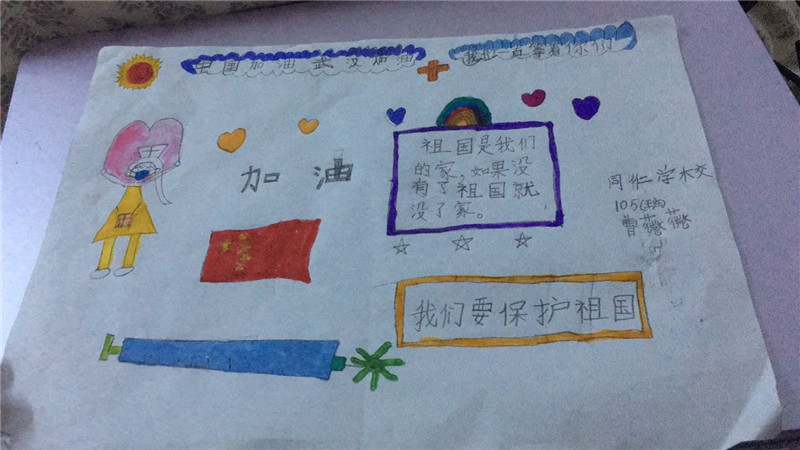 中国加油 武汉加油
一定等着你们
加油
祖国是我们
的家,如果没
有了祖国就
没了家。
同仁学校
105班
曹薇薇
我们要保护祖国